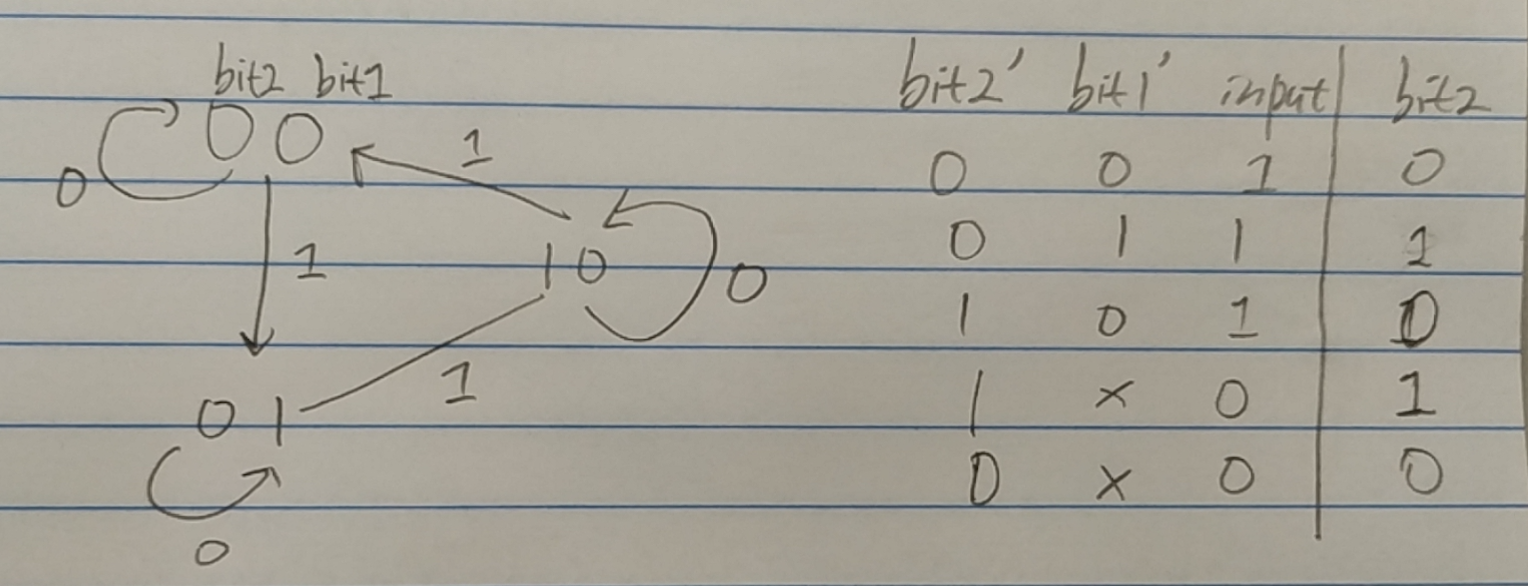 bit2 bit1
00
0
1
1
10
0
01
1
0
bit2' bit1' input bit2
0 0 1 0
0 1 1 1
1 0 1 0
1 x 0 1
0 x 0 0